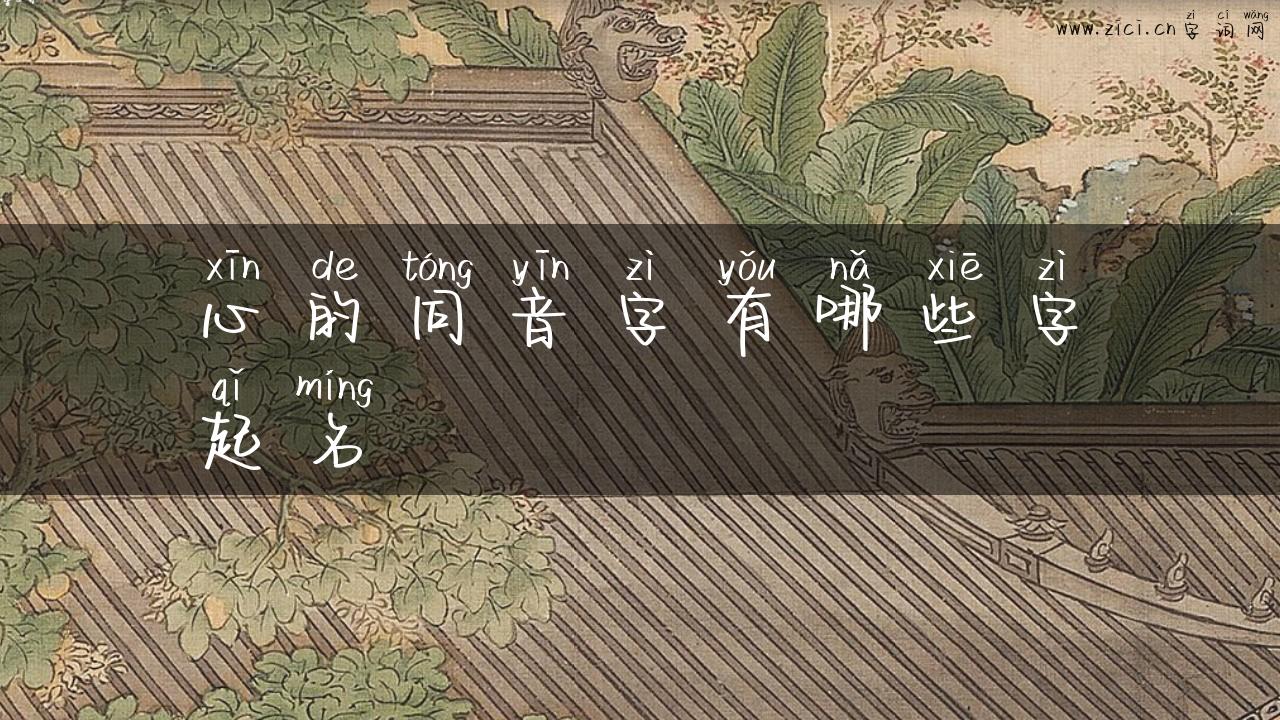 zì cí wǎng
www.zici.cn 字词网
xīn de tóng yīn zì yǒu nǎ xiē zì
心的同音字有哪些字
qǐ míng
起名